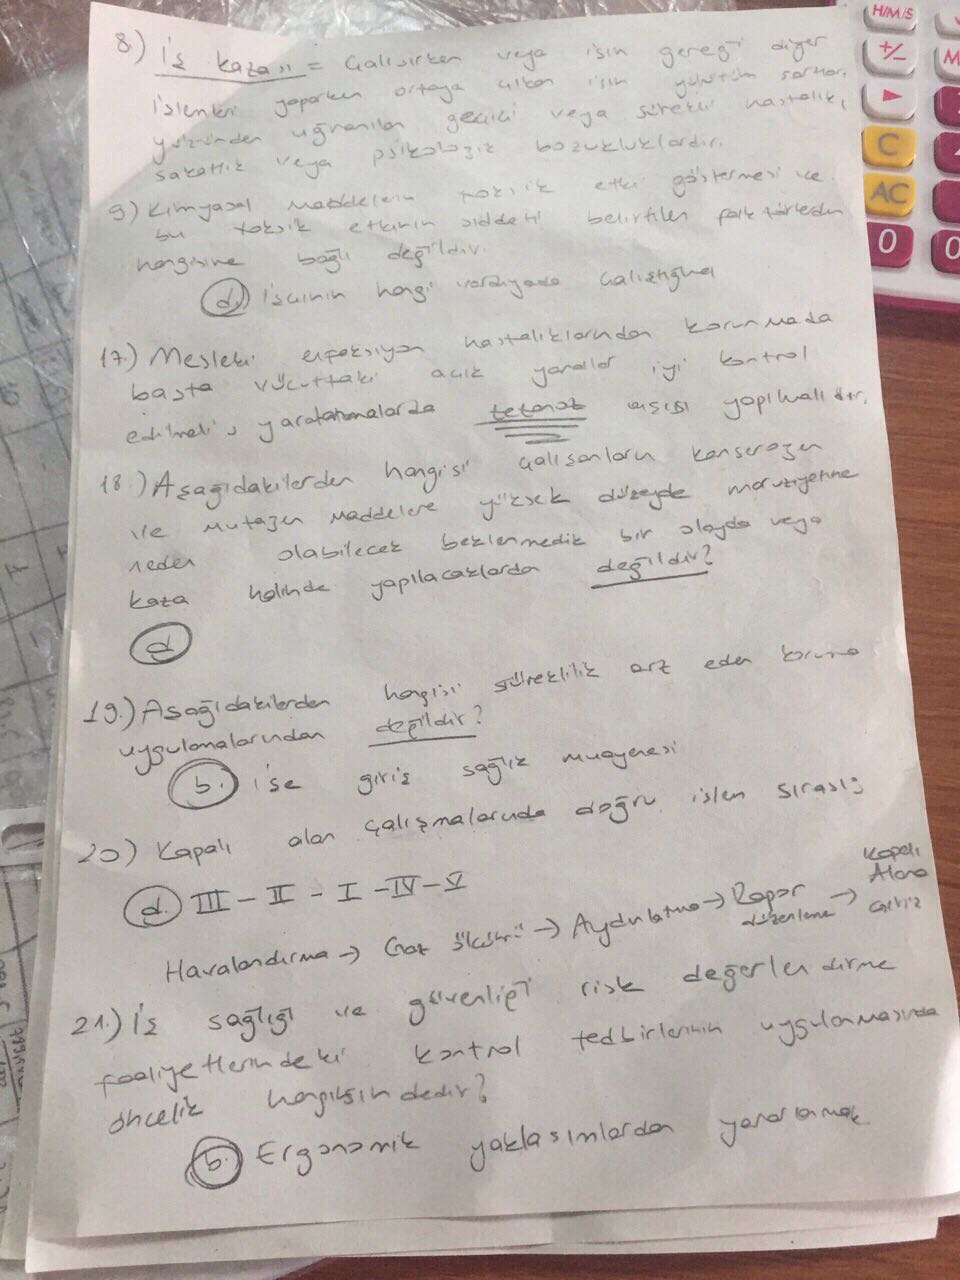 8) İş kazası = Çalışırken veya işin gereği diğer
işlemleri yaparken ortaya çıkan işin yürütüm şartları
yüzünden uğranılan geçici veya sürekli hastalık,
sakatlık veya psikolojik bozukluklardır.
9) Kimyasal maddelerin toksik etki göstermesi ve
bu toksik etkinin şiddeti belirtilen faktörlerden
hangisine bağlı değildir.
d. İşçinin hangi vardiyada çalıştığına
17.) Mesleki enfeksiyon hastalıklarından korunmada
başta vücuttaki açık yaralar iyi kontrol
edilmeli, yaralanmalarda tetanoz aşısı yapılmalıdır.
18.) Aşağıdakilerden hangisi çalışanların kanserojen
ve mutajen maddelere yüksek düzeyde maruziyetine
neden olabilecek beklenmedik bir olayda veya
kaza halinde yapılacaklarda değildir?
d
19.) Aşağıdakilerden hangisi süreklilik arz eden koruma
uygulamalarından değildir?
b. İşe giriş sağlık muayenesi
20) Kapalı alan çalışmalarında doğru işlem sırası;
d. III - II - I - IV - V
Havalandırma → Gaz ölçümü → Aydınlatma → Rapor düzenleme → Kapalı Alana Giriş
21.) İş sağlığı ve güvenliği risk değerlendirme
faaliyetlerindeki kontrol tedbirlerinin uygulanmasında
öncelik hangisindedir?
b. Ergonomik yaklaşımlardan yararlanmak
H/M/S
+/-
M
▶
C
AC
0
0